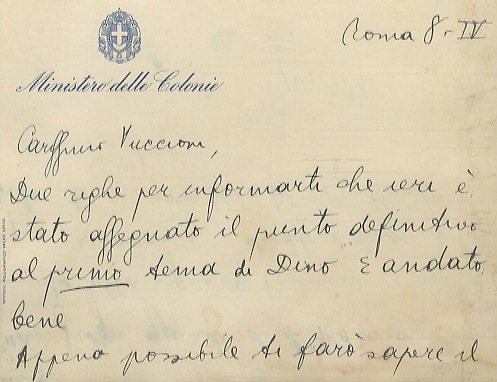 Roma 8-IV
Ministero delle Colonie
Cariffimo Vuccioni,
Due righe per informarti che ieri è
stato affegnato il punto definitivo
al primo tema di Dino È andato
bene
Appena possibile ti farò sapere il